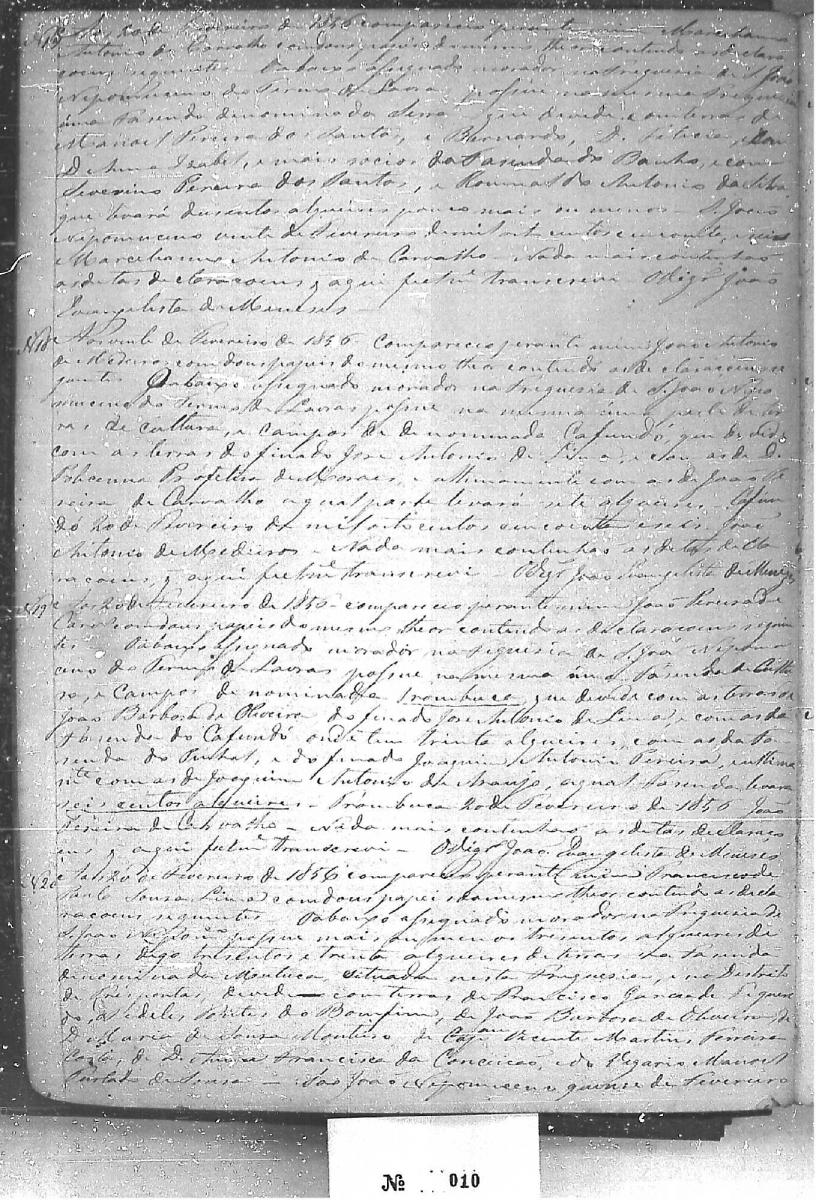 N17 Aos 20 de Fevereiro de 1856 compareceo perante mim Marcelianno
Antonio de Carvalho com dous papeis do mesmo theor contendo as declara
coens seguintes O abaixo assignado morador na Freguesia de S. João
Nepomuceno do Termo de Lavras possue na mesma Freguesia
uma Fasenda denominada Serra que devide com terras de
Manoel Pereira dos Santos, e Bernardo, D. Felicia, e com
D. Anna Izabel, e mais socios da Fasenda do Banho, e com
Severino Pereira dos Santos, e Romualdo Antonio da Silva
que levará dusentos alqueires pouco mais ou menos S. João
Nepomuceno vinte de Fevereiro de mil oito centos e cincoenta, e seis
Marcelianno Antonio de Carvalho Nada mais continhão
as ditas declaracoens q aqui fielme transcrevi O Vigro João
Evangelista de Meneses
N18 Aos vinte de Fevereiro de 1856 Compareceo perante mim João Antonio
de Medeiros com dous papeis do mesmo theor contendo as declaracoens se
guintes O abaixo assignado morador na Freguesia de S. João Nepo
muceno do Termo de Lavras possue na mesma uma parte de ter
ras de cultura, e campos de denominada Cafundó, que devide
com as terras do finado Jose Antonio de Lima, e com as de D.
Policenna Profetisa de Moraes, e ultimamente com as de João Pe
reira de Carvalho a qual parte levará sete alqueires Cafun
dó 20 de Fevereiro de mil oito centos cincoenta e seis João
Antonio de Medeiros Nada mais continhão as ditas decla
racoens, q aqui fielme transcrevi O Vigro João Evangelista de Meneses
N19 Aos 20 de Fevereiro de 1856 compareceo perante mim João Pereira de
Caro com dous papeis do mesmo theor contendo as declaracoens seguin
tes O abaixo assignado morador na Freguesia de S. João Nepomu
ceno do Termo de Lavras possue na mesma uma Fasenda de Cultu
ra, e Campos denominada Trambuca que devide com as terras de
João Barbosa de Oliveira do finado Jose Antonio de Lima, e com as da
Fasenda do Cafundó onde tem trinta alqueires, com as da Fa
senda do Pinhal, e do finado Joaquim Antonio Pereira, e ultima
mte com as de Joaquim Antonio de Araujo, a qual Fasenda levara
seis centos alqueires Trambuca 20 de Fevereiro de 1856 João
Pereira de Carvalho Nada mais continhão as ditas declaraço
ens, q aqui fielme transcrevi O Vigro João Evangelista de Meneses
N20 Aos 20 de Fevereiro de 1856 compareceo perante mim Francisco de
Paula Sousa Lima com dous papeis do mesmo theor contendo as decla
racoens seguintes O abaixo assignado morador na Freguesia de
S. João Nepomno possue mais ou menos tresentos alqueires de
terras digo tresentos e trinta alqueires de terras na Fasenda
denominada Mentuca, situada nesta Freguesia, e no Destrito
de Trespontas, devide com terras de Francisco Garcia de Figuere
do, Fideles Pontes do Bomfim, de João Barbosa de Oliveira, de
D. Maria de Sousa Monteiro, de Capam Vicente Martins Ferreira
Costa, de D. Anna Francisca da Conceicão, e do Vigario Manoel
Furtado de Sousa São João Nepomuceno quinse de Fevereiro
No 010